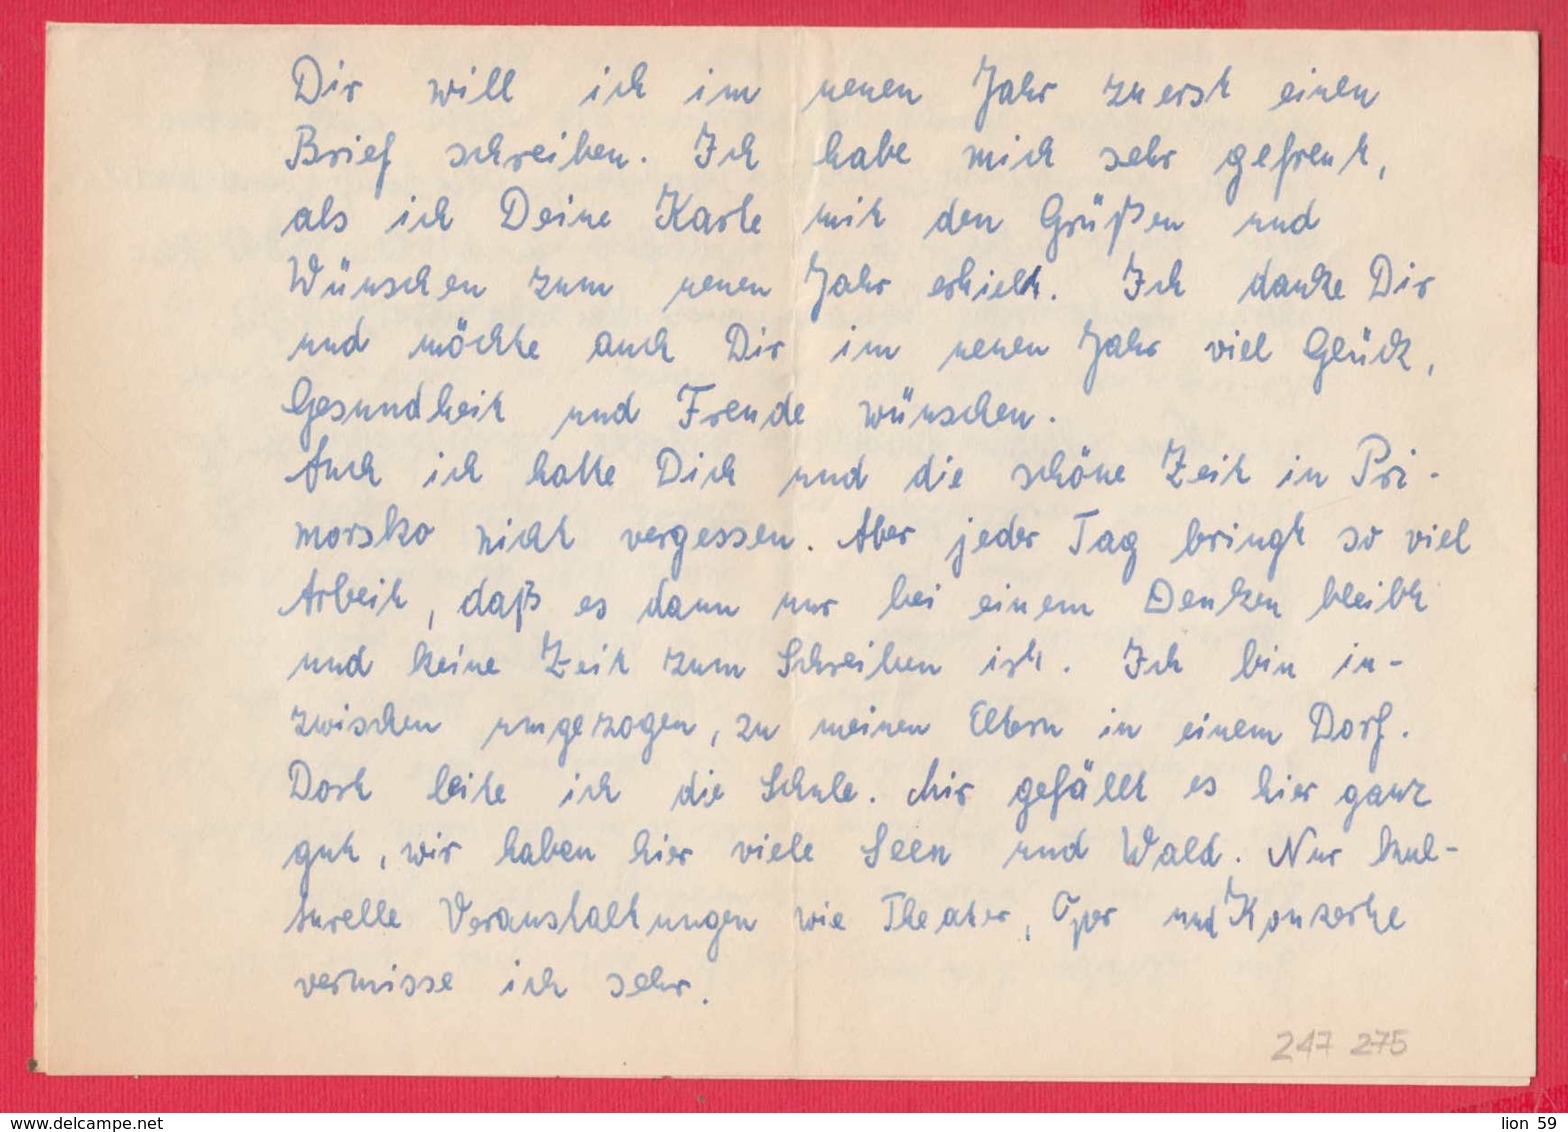 Dir will ich im neuen Jahr zuerst einen
Brief schreiben. Ich habe mich sehr gefreut,
als ich Deine Karte mit den Grüßen und
Wünschen zum neuen Jahr erhielt. Ich danke Dir
und möchte auch Dir im neuen Jahr viel Glück,
Gesundheit und Freude wünschen.
Auch ich hatte Dich und die schöne Zeit in Pri-
morsko nicht vergessen. Aber jeder Tag bringt so viel
Arbeit, daß es dann nur bei einem Denken bleibt
und keine Zeit zum Schreiben ist. Ich bin in-
zwischen umgezogen, zu meinen Eltern in einem Dorf.
Dort leite ich die Schule. Mir gefällt es hier ganz
gut, wir haben hier viele Seen und Wald. Nur kul-
turelle Veranstaltungen wie Theater, Oper und Konzerte
vermisse ich sehr.
247 275
www.delcampe.net
lion_59